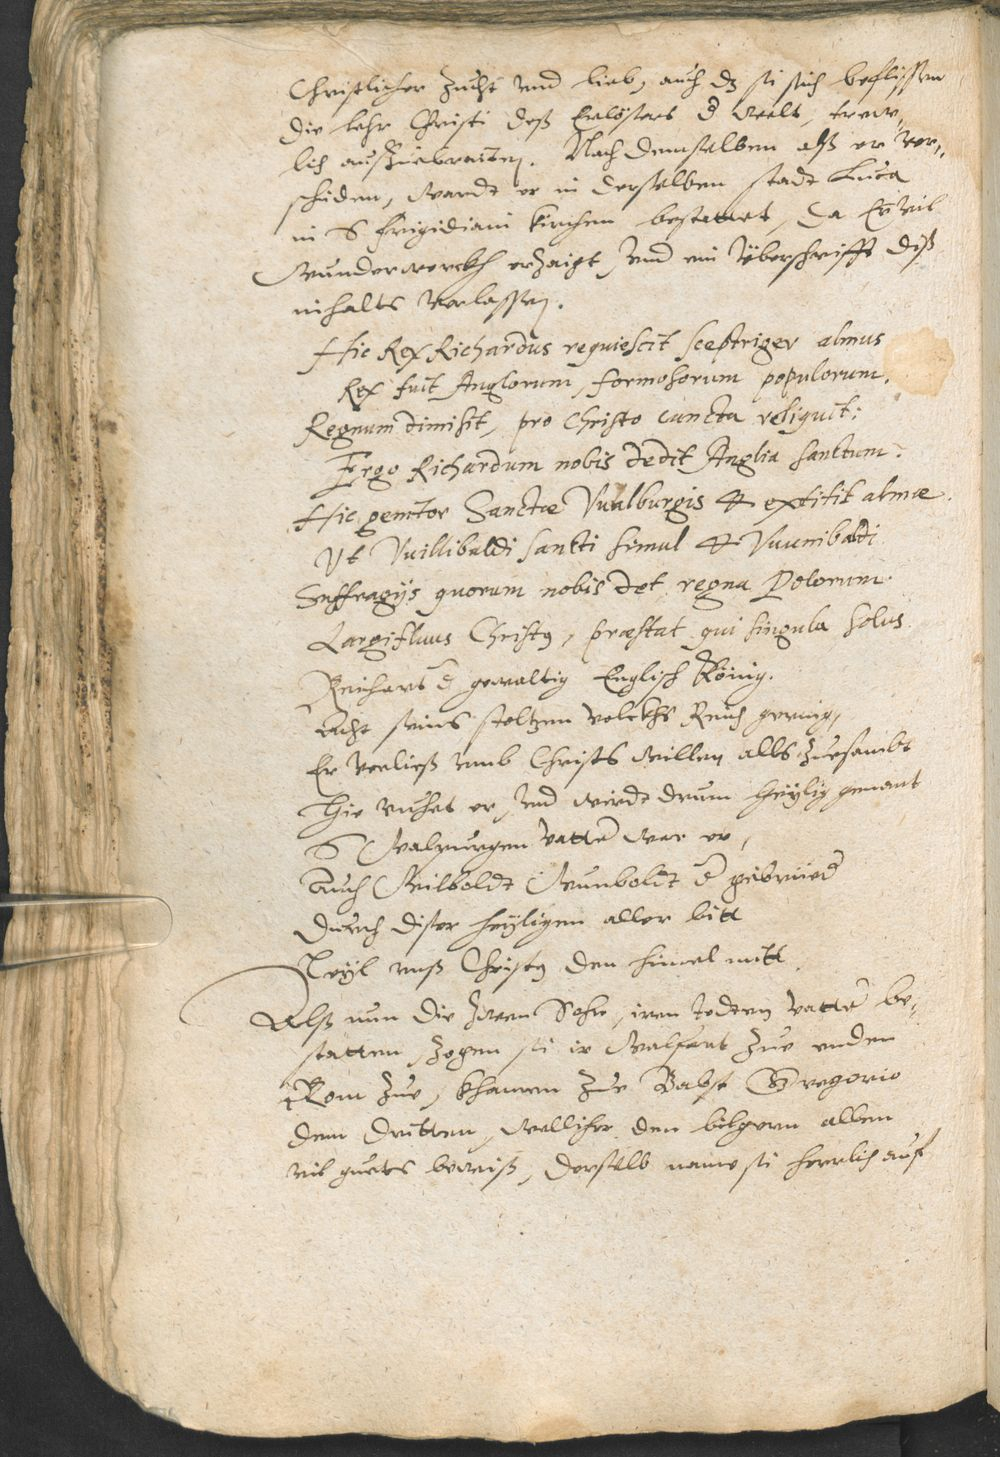 Christlicher Zucht vnd lieb, auch dz si sich beflissen
die lehr Christi deß Erlösters d Welt, trew„
lich auszuebraiten. Nach demselben alß er ver„
schiden, wardt er in derselben stadt Luca
in S Frigidiani kirchen bestattet, da Er vil
Wunderwerckh erzaigt, vnd ein Yberschrifft diß
inhalts verlassen.
Hic Rex Richardus requiescit sceptriger almus
Rex fuit Anglorum, formosorum populorum.
Regnum dimisit, pro Christo cuncta reliquit:
Ergo Richardum nobis dedit Anglia sanctum.
Hic genitor Sanctæ Vualburgis & extitit almæ.
Vt Vuillibaldi sancti simul & Vuunibaldi
Suffragijs quorum nobis det regna Polorum.
Largifluus Christꝫ, præstat qui singula solus
Reichart d gewaltig Englisch König.
Acht seins stoltzen volckhs Reich gering,
Er verließ vmb Christs willen alls zuesambt
Hie ruhet er, vnd wirdt drum heylig genant
S Walpurgen vatter war er,
Auch Wilboldt Wunboldt d gebrüed
Durch diser heyligen aller bitt
Teyl vnß Christꝫ den himel mitt.
Alß nun die zwen Söhn, iren todten vatter be„
statten, zogen si ir Walfart zue enden
Rom zue, khamen zue Babst Gregorio
dem dritten, wellicher den bilgern allen
vil guets bewiß, derselb name si herrlich auf